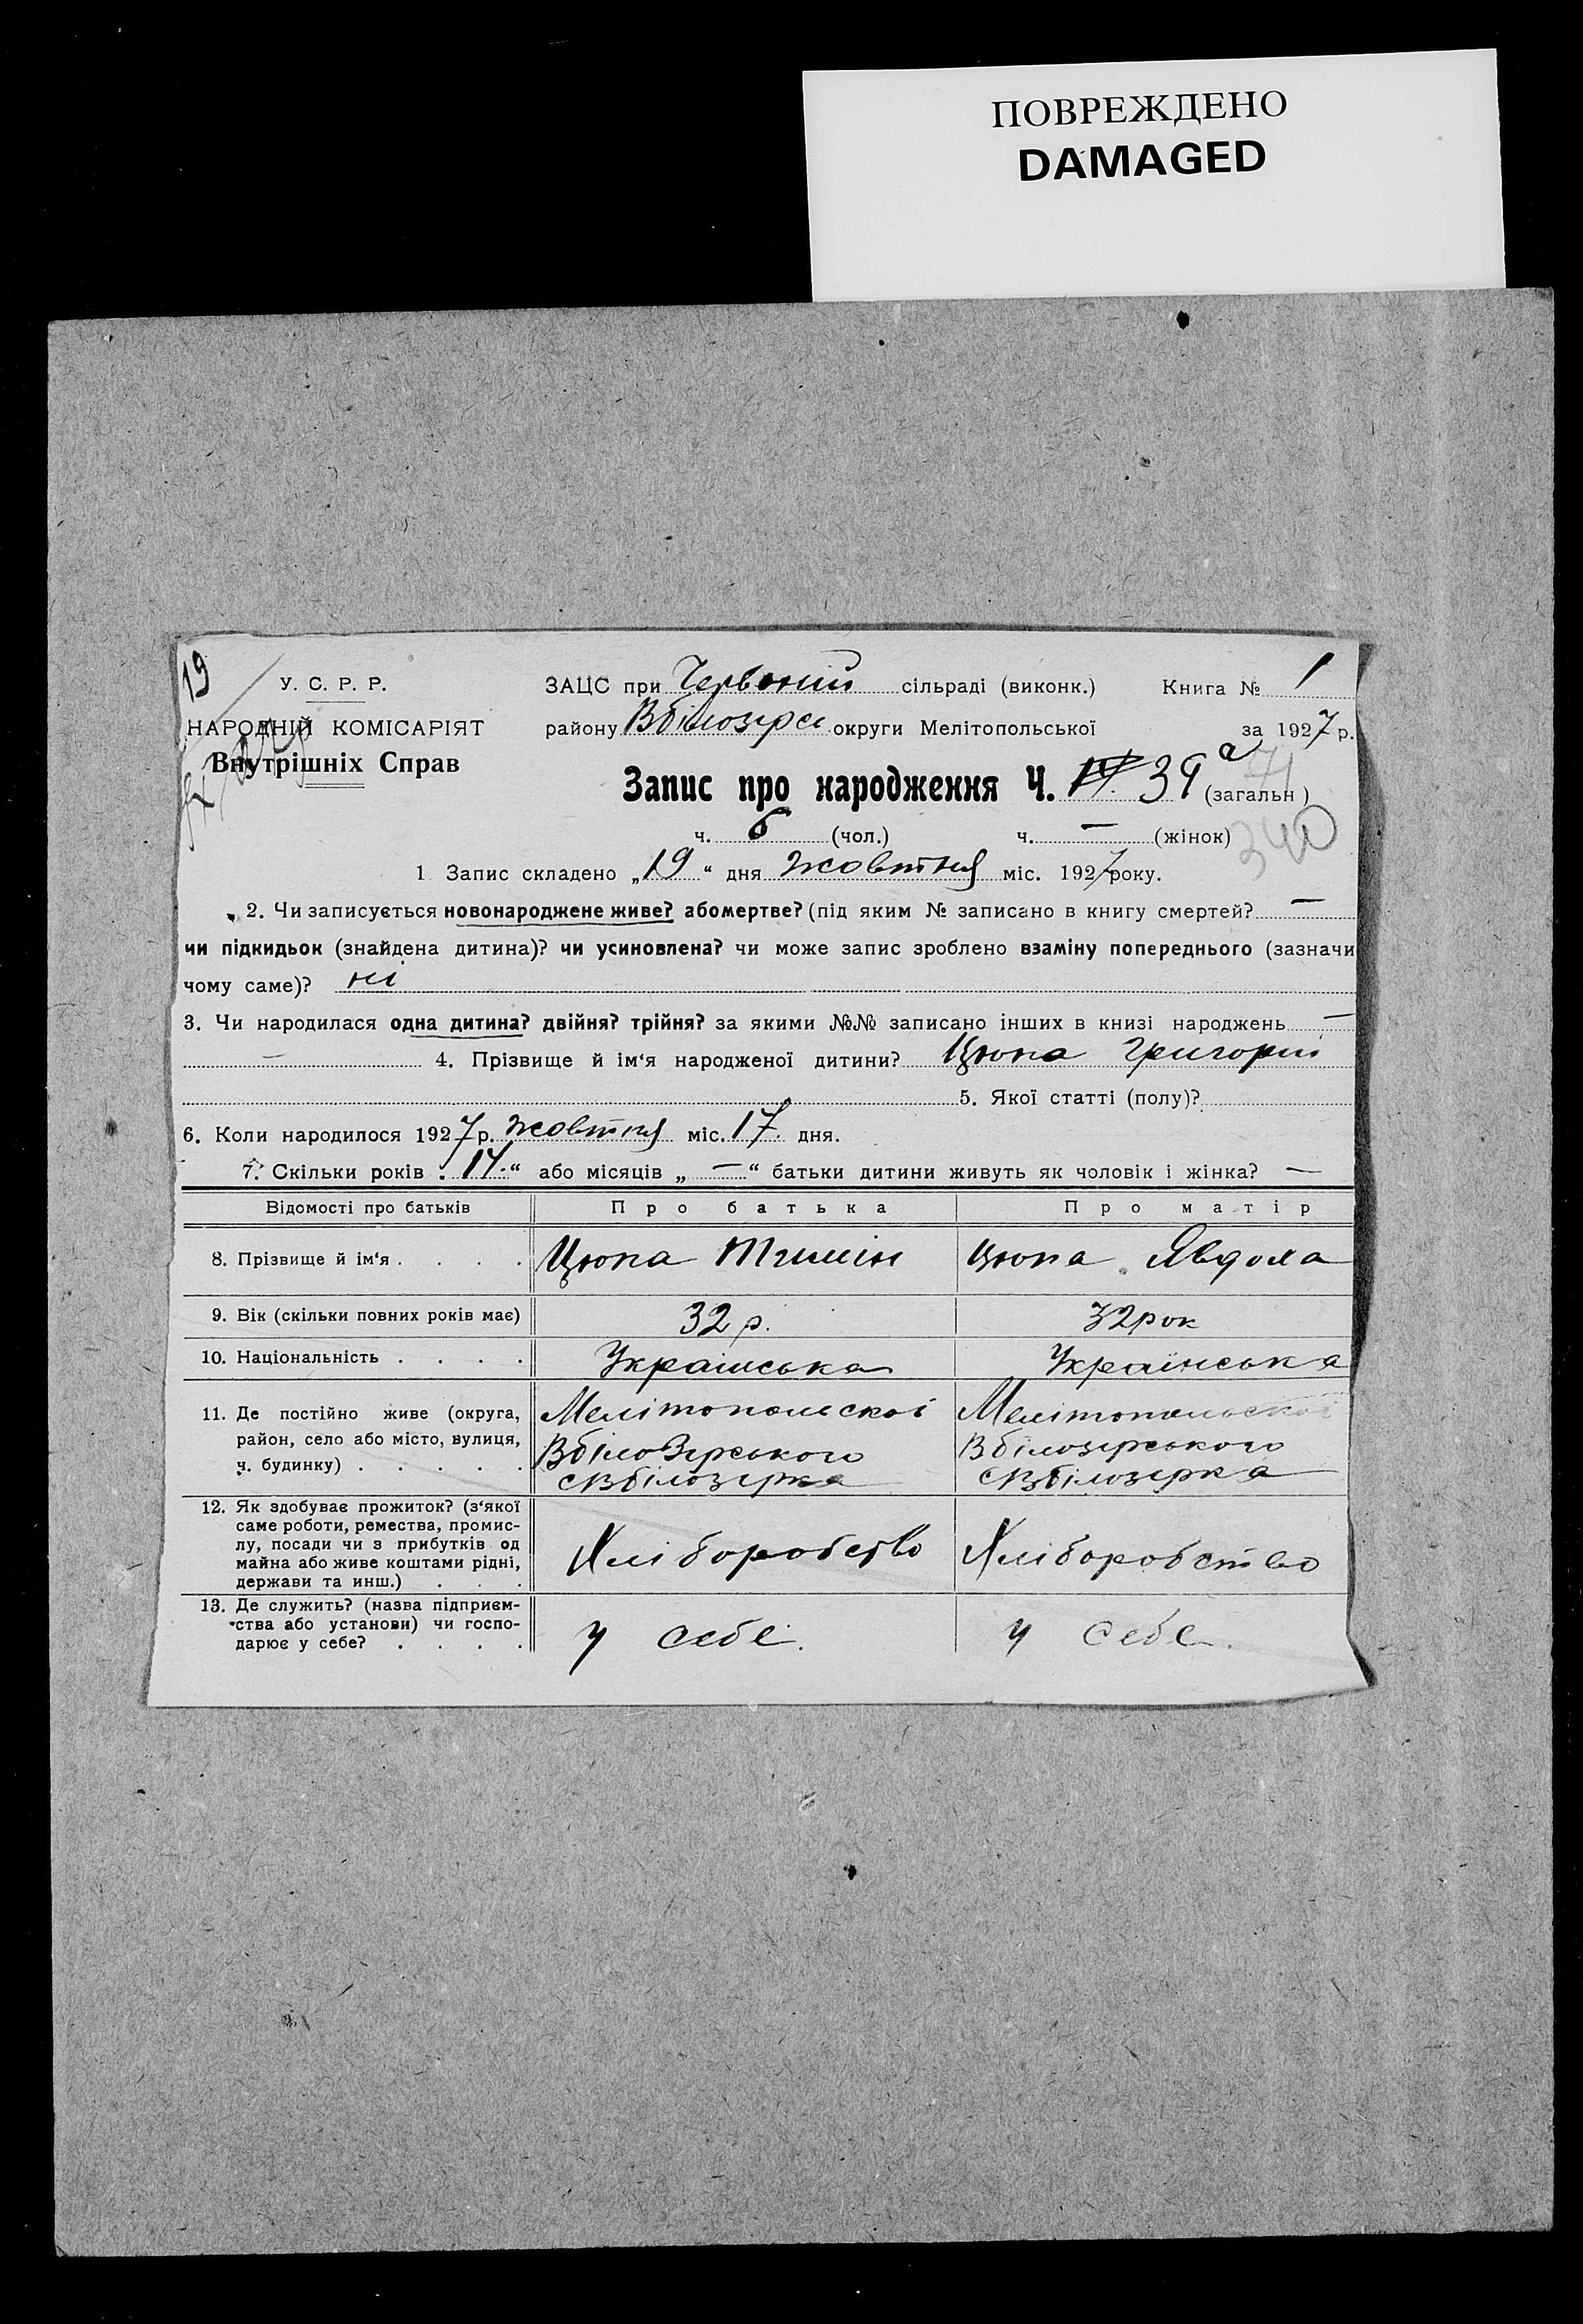 ПОВРЕЖДЕНО
DAMAGED
19
У. С. Р. Р.
НАРОДНІЙ КОМІСАРІЯТ
Внутрішніх Справ
ЗАЦС при Червоній сільраді (виконк.) Книга № 1
району Вбілозерс округи Мелітопольської за 1927 р.
Запис про народження Ч. 39 а (загальн)
71
340
ч. 6 (чол.) ч. — (жінок)
1 Запис складено „19“ дня жовтня міс. 1927 року.
2. Чи записується новонароджене живе? або мертве? (під яким № записано в книгу смертей? —
чи підкидьок (знайдена дитина)? чи усиновлена? чи може запис зроблено взаміну попереднього (зазначи
чому саме)? ні
3. Чи народилася одна дитина? двійня? трійня? за якими №№ записано інших в книзі народжень —
— 4. Прізвище й ім‘я народженої дитини? Цюпа Григорій
5. Якої статті (полу)?
6. Коли народилося 1927 р. жовтня міс. 17 дня.
7. Скільки років „14“ або місяців „—“ батьки дитини живуть як чоловік і жінка? —
Відомості про батьків Про батька Про матір
8. Прізвище й ім‘я . . . . Цюпа Тиміш Цюпа Явдоха
9. Вік (скільки повних років має) 32 р. 32 рок
10. Національність . . . . Українська Українська
11. Де постійно живе (округа, район, село або місто, вулиця, ч. будинку) . . . . .
Мелітопольскої
Вбілозерського
с Вбілозерка
Мелітопольської
Вбілозерського
с Вбілозерка
12. Як здобуває прожиток? (з‘якої
саме роботи, ремества, промис-
лу, посади чи з прибутків од
майна або живе коштами рідні,
держави та инш.) . . .
Хліборобство Хліборобство
13. Де служить? (назва підприєм-
ства або установи) чи госпо-
дарює у себе? . . . .
у себе. у себе.